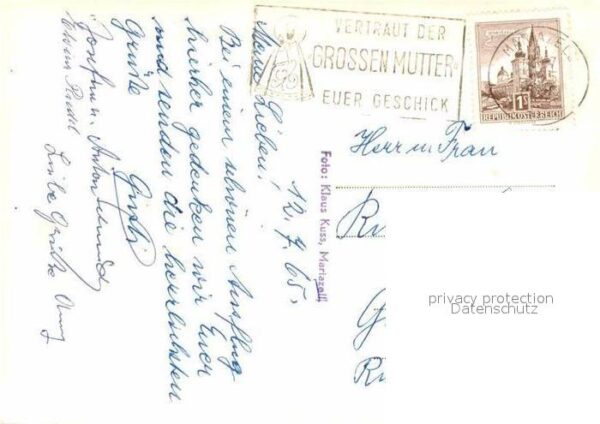 VERTRAUT DER
GROSSEN MUTTER
EUER GESCHICK
1S
REPUBLIK ÖSTERREICH
Herrn u. Frau
privacy protection
Datenschutz
Foto: Klaus Kuss, Mariazell
12.7.65.
Meine Lieben!
Bei einem schönen Ausflug
hierher gedenken wir Euer
und senden die herzlichsten
Grüße
Josef u. Anton
Liebe Grüße